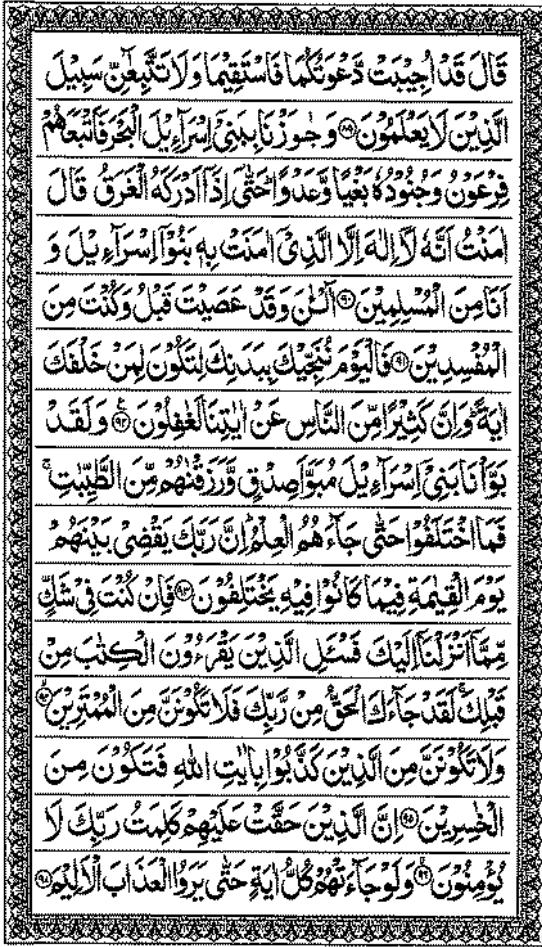 قَالَ قَدْ اُجِيْبَتْ دَّعْوَتُكُمَا فَاسْتَقِيْمَا وَلَا تَتَّبِعٰٓنِّ سَبِيْلَ
الَّذِيْنَ لَا يَعْلَمُوْنَ ﴿۸۹﴾ وَجٰوَزْنَا بِبَنِيْٓ اِسْرَآءِيْلَ الْبَحْرَ فَاَتْبَعَهُمْ
فِرْعَوْنُ وَجُنُوْدُهٗ بَغْيًا وَّعَدْوًا ؕ حَتّٰٓى اِذَآ اَدْرَكَهُ الْغَرَقُ قَالَ
اٰمَنْتُ اَنَّهٗ لَآ اِلٰهَ اِلَّا الَّذِيْٓ اٰمَنَتْ بِهٖ بَنُوْٓا اِسْرَآءِيْلَ وَ
اَنَا مِنَ الْمُسْلِمِيْنَ ﴿۹۰﴾ آٰلْـٰٔنَ وَقَدْ عَصَيْتَ قَبْلُ وَكُنْتَ مِنَ
الْمُفْسِدِيْنَ ﴿۹۱﴾ فَالْيَوْمَ نُنَجِّيْكَ بِبَدَنِكَ لِتَكُوْنَ لِمَنْ خَلْفَكَ
اٰيَةً ؕ وَاِنَّ كَثِيْرًا مِّنَ النَّاسِ عَنْ اٰيٰتِنَا لَغٰفِلُوْنَ ﴿۹۲﴾ وَلَقَدْ
بَوَّاْنَا بَنِيْٓ اِسْرَآءِيْلَ مُبَوَّاَ صِدْقٍ وَّرَزَقْنٰهُمْ مِّنَ الطَّيِّبٰتِ ۚ
فَمَا اخْتَلَفُوْا حَتّٰى جَآءَهُمُ الْعِلْمُ ؕ اِنَّ رَبَّكَ يَقْضِيْ بَيْنَهُمْ
يَوْمَ الْقِيٰمَةِ فِيْمَا كَانُوْا فِيْهِ يَخْتَلِفُوْنَ ﴿۹۳﴾ فَاِنْ كُنْتَ فِيْ شَكٍّ
مِّمَّآ اَنْزَلْنَآ اِلَيْكَ فَسْـَٔلِ الَّذِيْنَ يَقْرَءُوْنَ الْكِتٰبَ مِنْ
قَبْلِكَ ۚ لَقَدْ جَآءَكَ الْحَقُّ مِنْ رَّبِّكَ فَلَا تَكُوْنَنَّ مِنَ الْمُمْتَرِيْنَ ﴿۹۴﴾
وَلَا تَكُوْنَنَّ مِنَ الَّذِيْنَ كَذَّبُوْا بِاٰيٰتِ اللّٰهِ فَتَكُوْنَ مِنَ
الْخٰسِرِيْنَ ﴿۹۵﴾ اِنَّ الَّذِيْنَ حَقَّتْ عَلَيْهِمْ كَلِمَتُ رَبِّكَ لَا
يُؤْمِنُوْنَ ﴿۹۶﴾ وَلَوْ جَآءَتْهُمْ كُلُّ اٰيَةٍ حَتّٰى يَرَوُا الْعَذَابَ الْاَلِيْمَ ﴿۹۷﴾